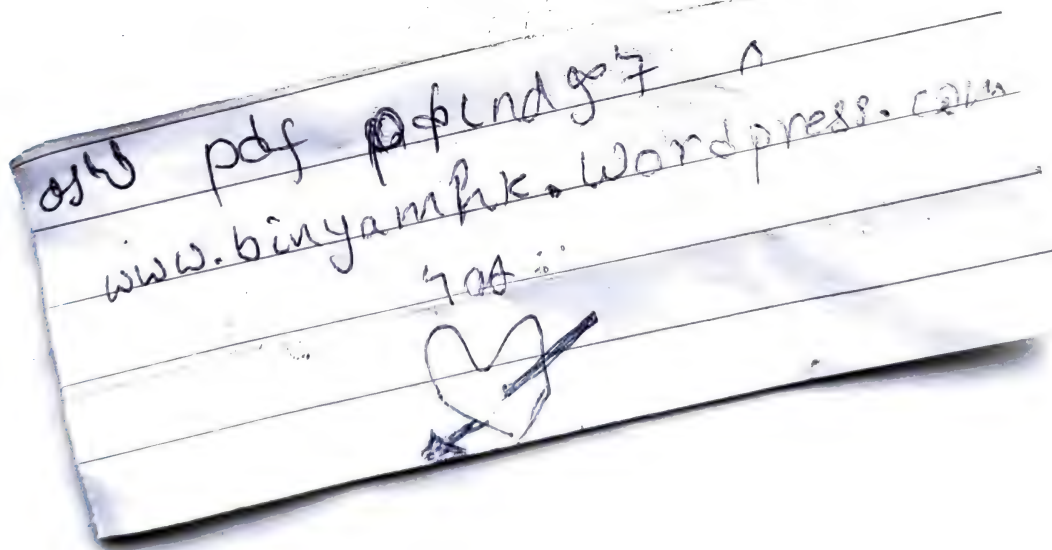 ይህ pdf የተዘጋጀው በ
www.binyamhk.wordpress.com
ነው።